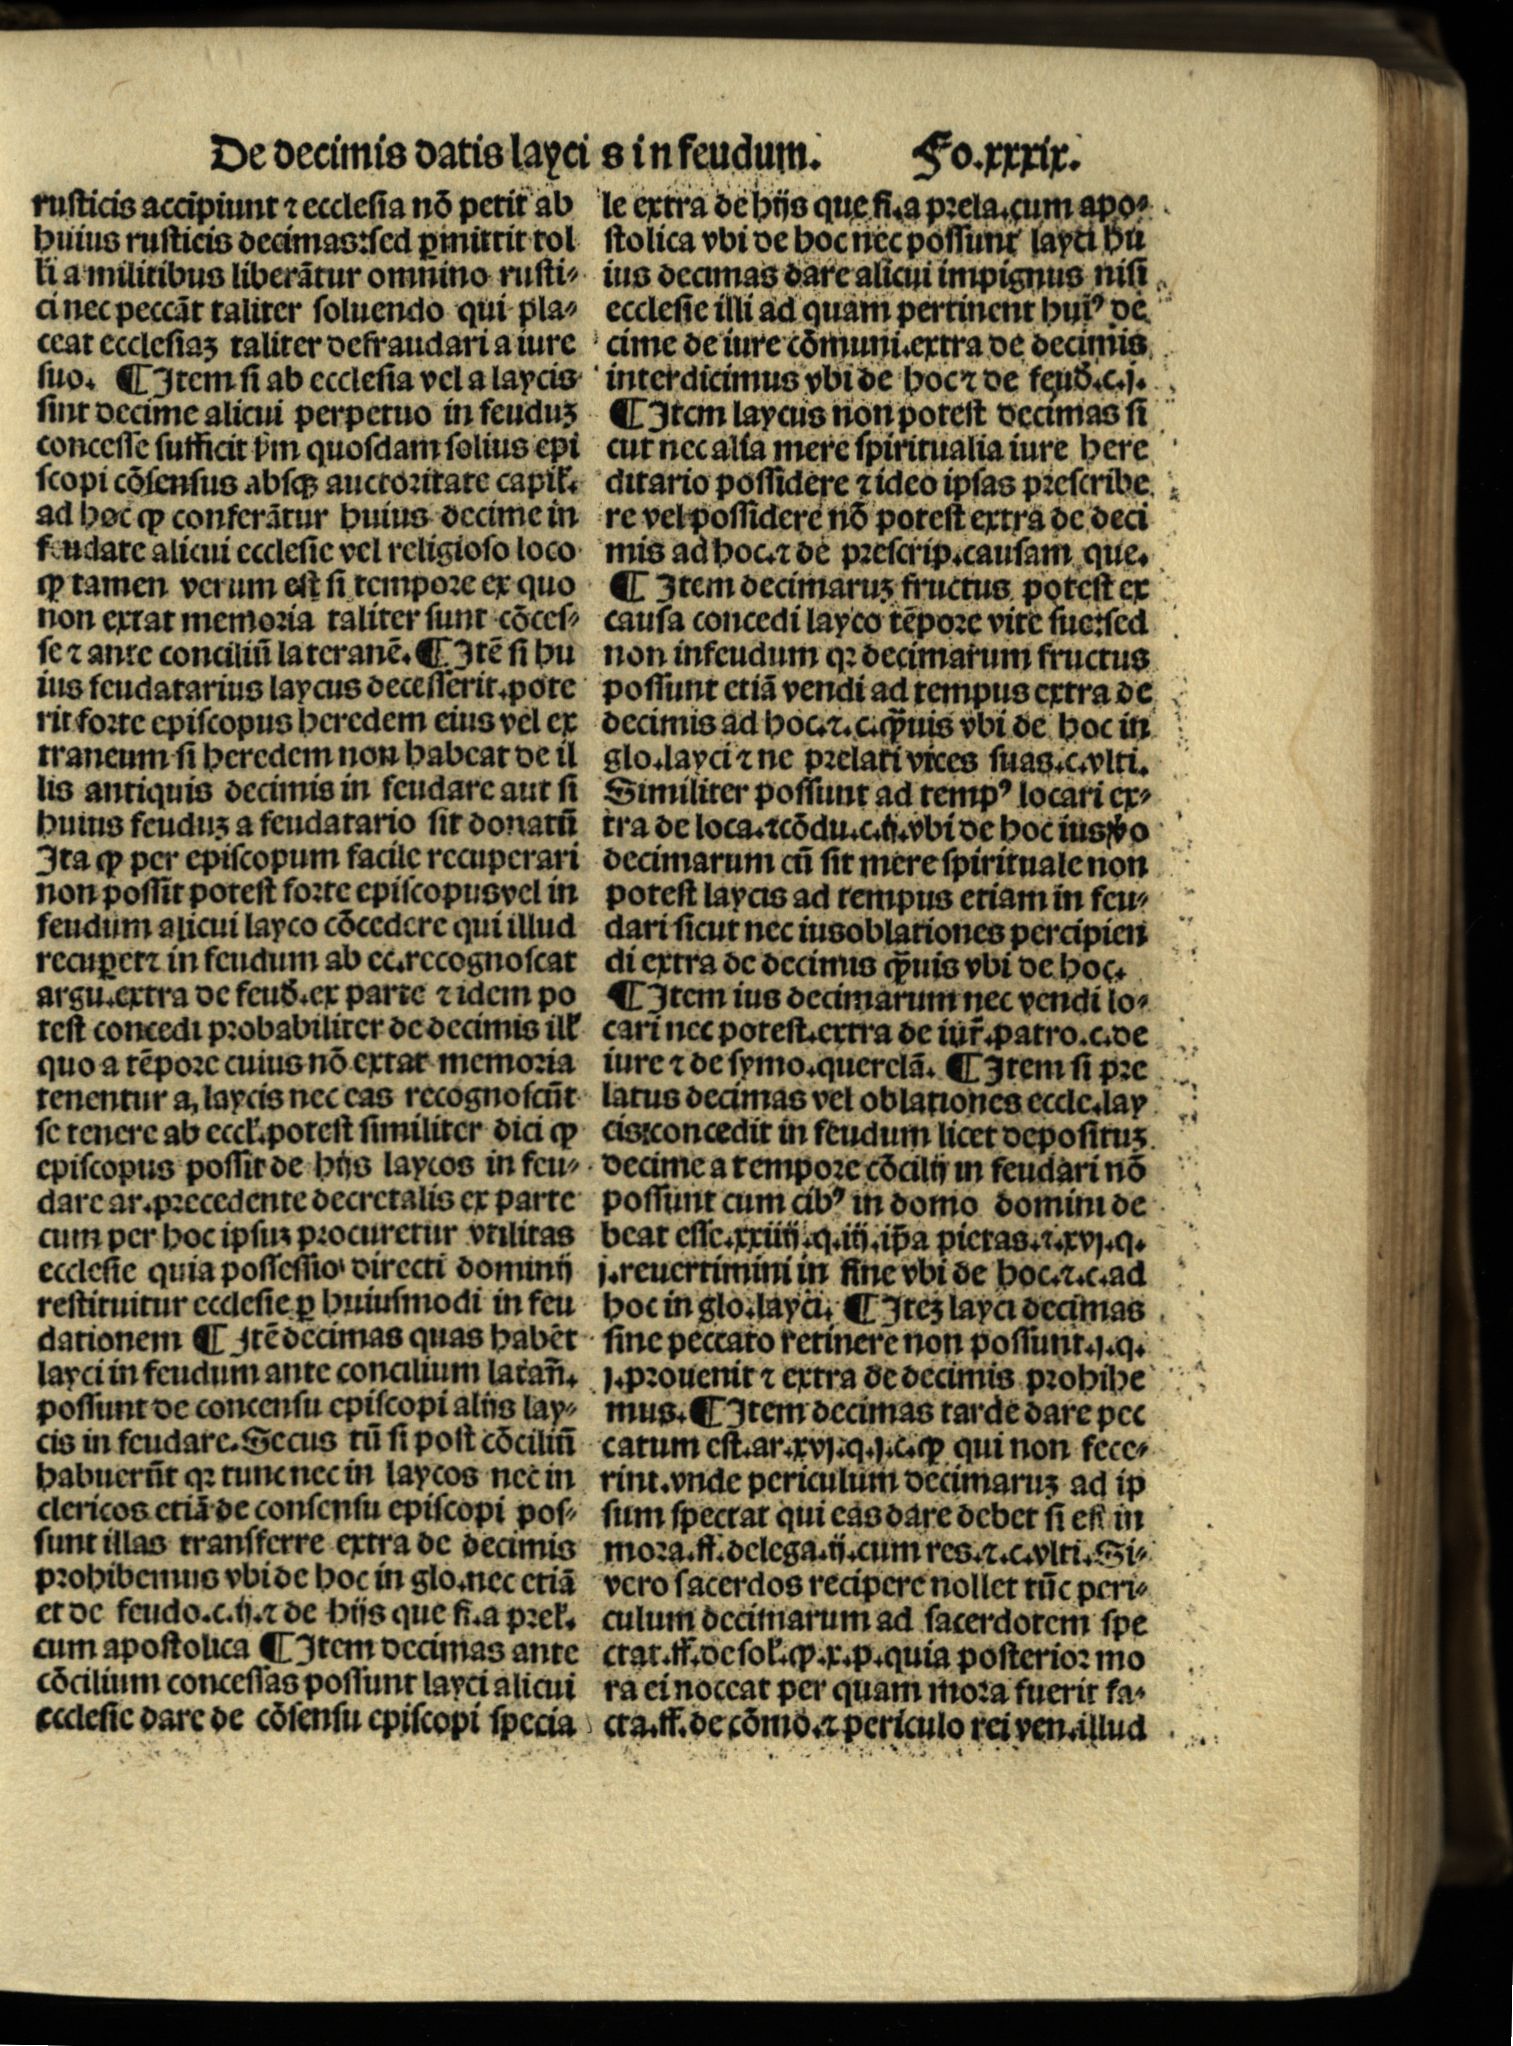 De decimis datis layci s in feudum. Fo.xxxix.
rusticis accipiunt ⁊ ecclesia nō petit ab
huius rusticis decimas:sed ꝑmittit tol
li a militibus liberātur omnino rusti⸗
ci nec peccāt taliter soluendo qui pla⸗
ceat ecclesiaꝫ taliter defraudari a iure
suo. ¶ Item si ab ecclesia vel a laycis
sint decime alicui perpetuo in feuduꝫ
concesse sufficit ẜm quosdam solius epi
scopi cōsensus absqꝫ auctoritate capiƚ.
ad hoc ꝙ conferātur huius decime in
feudate alicui ecclesie vel religioso loco
ꝙ tamen verum est si tempore ex quo
non extat memoria taliter sunt cōces⸗
se ⁊ ante conciliū lateranē. ¶ Itē si hu
ius feudatarius laycus decesserit.pote
rit forte episcopus heredem eius vel ex
traneum si heredem non habeat de il
lis antiquis decimis in feudare aut si
huius feuduꝫ a feudatario sit donatū
Ita ꝙ per episcopum facile recuperari
non possit potest forte episcopus vel in
feudum alicui layco cōcedere qui illud
recuꝑet⁊ in feudum ab ec.recognoscat
argu.extra de feuđ.ex parte ⁊ idem po
test concedi probabiliter de decimis ilƚ
quo a tēpore cuius nō extat memoria
tenentur a, laycis nec eas recognoscūt
se tenere ab eccƚ.potest similiter dici ꝙ
episcopus possit de hijs laycos in feu⸗
dare ar.precedente decretalis ex parte
cum per hoc ipsuꝫ procuretur vtilitas
ecclesie quia possessio directi dominij
restituitur ecclesie ꝑ huiusmodi in feu
dationem ¶ Itē decimas quas habēt
layci in feudum ante concilium latan̄.
possunt de concensu episcopi alijs lay⸗
cis in feudare.Secus tn̄ si post cōciliū
habuerūt qꝛ tunc nec in laycos nec in
clericos etiā de consensu episcopi pos⸗
sunt illas transferre extra de decimis
prohibemus vbi de hoc in glo.nec etiā
et de feudo.c.ij.⁊ de hijs que fi.a preƚ.
cum apostolica ¶ Item decimas ante
cōcilium concessas possunt layci alicui
ecclesie dare de cōsensu episcopi specia
le extra de hijs que fi.a prela.cum apo⸗
stolica vbi de hoc nec possunt layci hu
ius decimas dare alicui impignus nisi
ecclesie illi ad quam pertinent huiꝰ de
cime de iure cōmuni.extra de decimis
interdicimus vbi de hoc ⁊ de feuđ.c.j.
¶ Item laycus non potest decimas si
cut nec alia mere spiritualia iure here
ditario possidere ⁊ ideo ipsas prescribe
re vel possidere nō potest extra de deci
mis ad hoc.⁊ de prescrip.causam que.
¶ Item decimaruꝫ fructus potest ex
causa concedi layco tēpore vite sue:sed
non infeudum qꝛ decimarum fructus
possunt etiā vendi ad tempus extra de
decimis ad hoc.⁊.c.q̄uis vbi de hoc in
glo.layci ⁊ ne prelati vices suas.c.vlti.
Similiter possunt ad tempꝰ locari ex⸗
tra de loca.⁊cōdu.c.ij.vbi de hoc ius ꝟo
decimarum cū sit mere spirituale non
potest laycis ad tempus etiam in feu⸗
dari sicut nec ius oblationes percipien
di extra de decimis q̄uis vbi de hoc.
¶ Item ius decimarum nec vendi lo⸗
cari nec potest.extra de iur̄.patro.c.de
iure ⁊ de symo.querelā. ¶ Item si pre
latus decimas vel oblationes eccle.lay
cis:concedit in feudum licet depositus
decime a tempore cōcilij in feudari nō
possunt cum cibꝰ in domo domini de
beat esse.xxiiij.q.iij.ip̄a pietas.⁊.xvj.q.
j.reuertimini in fine vbi de hoc.⁊.c.ad
hoc in glo.layci. ¶ Iteꝫ layci decimas
sine peccato retinere non possunt.j.q.
j.prouenit ⁊ extra de decimis prohibe
mus. ¶ Item decimas tarde dare pec
catum est.ar.xvj.q.j.c.ꝙ qui non fece⸗
rint.vnde periculum decimaruꝫ ad ip
sum spectat qui eas dare debet si est in
mora.ff.delega.ij.cum res.⁊.c.vlti.Si⸗
vero sacerdos recipere nollet tūc peri⸗
culum decimarum ad sacerdotem spe
ctat.ff.de soƚ.ꝙ.x.p.quia posterior mo
ra ei noceat per quam mora fuerit fa⸗
cta.ff.de cōmo.⁊ periculo rei ven.illud